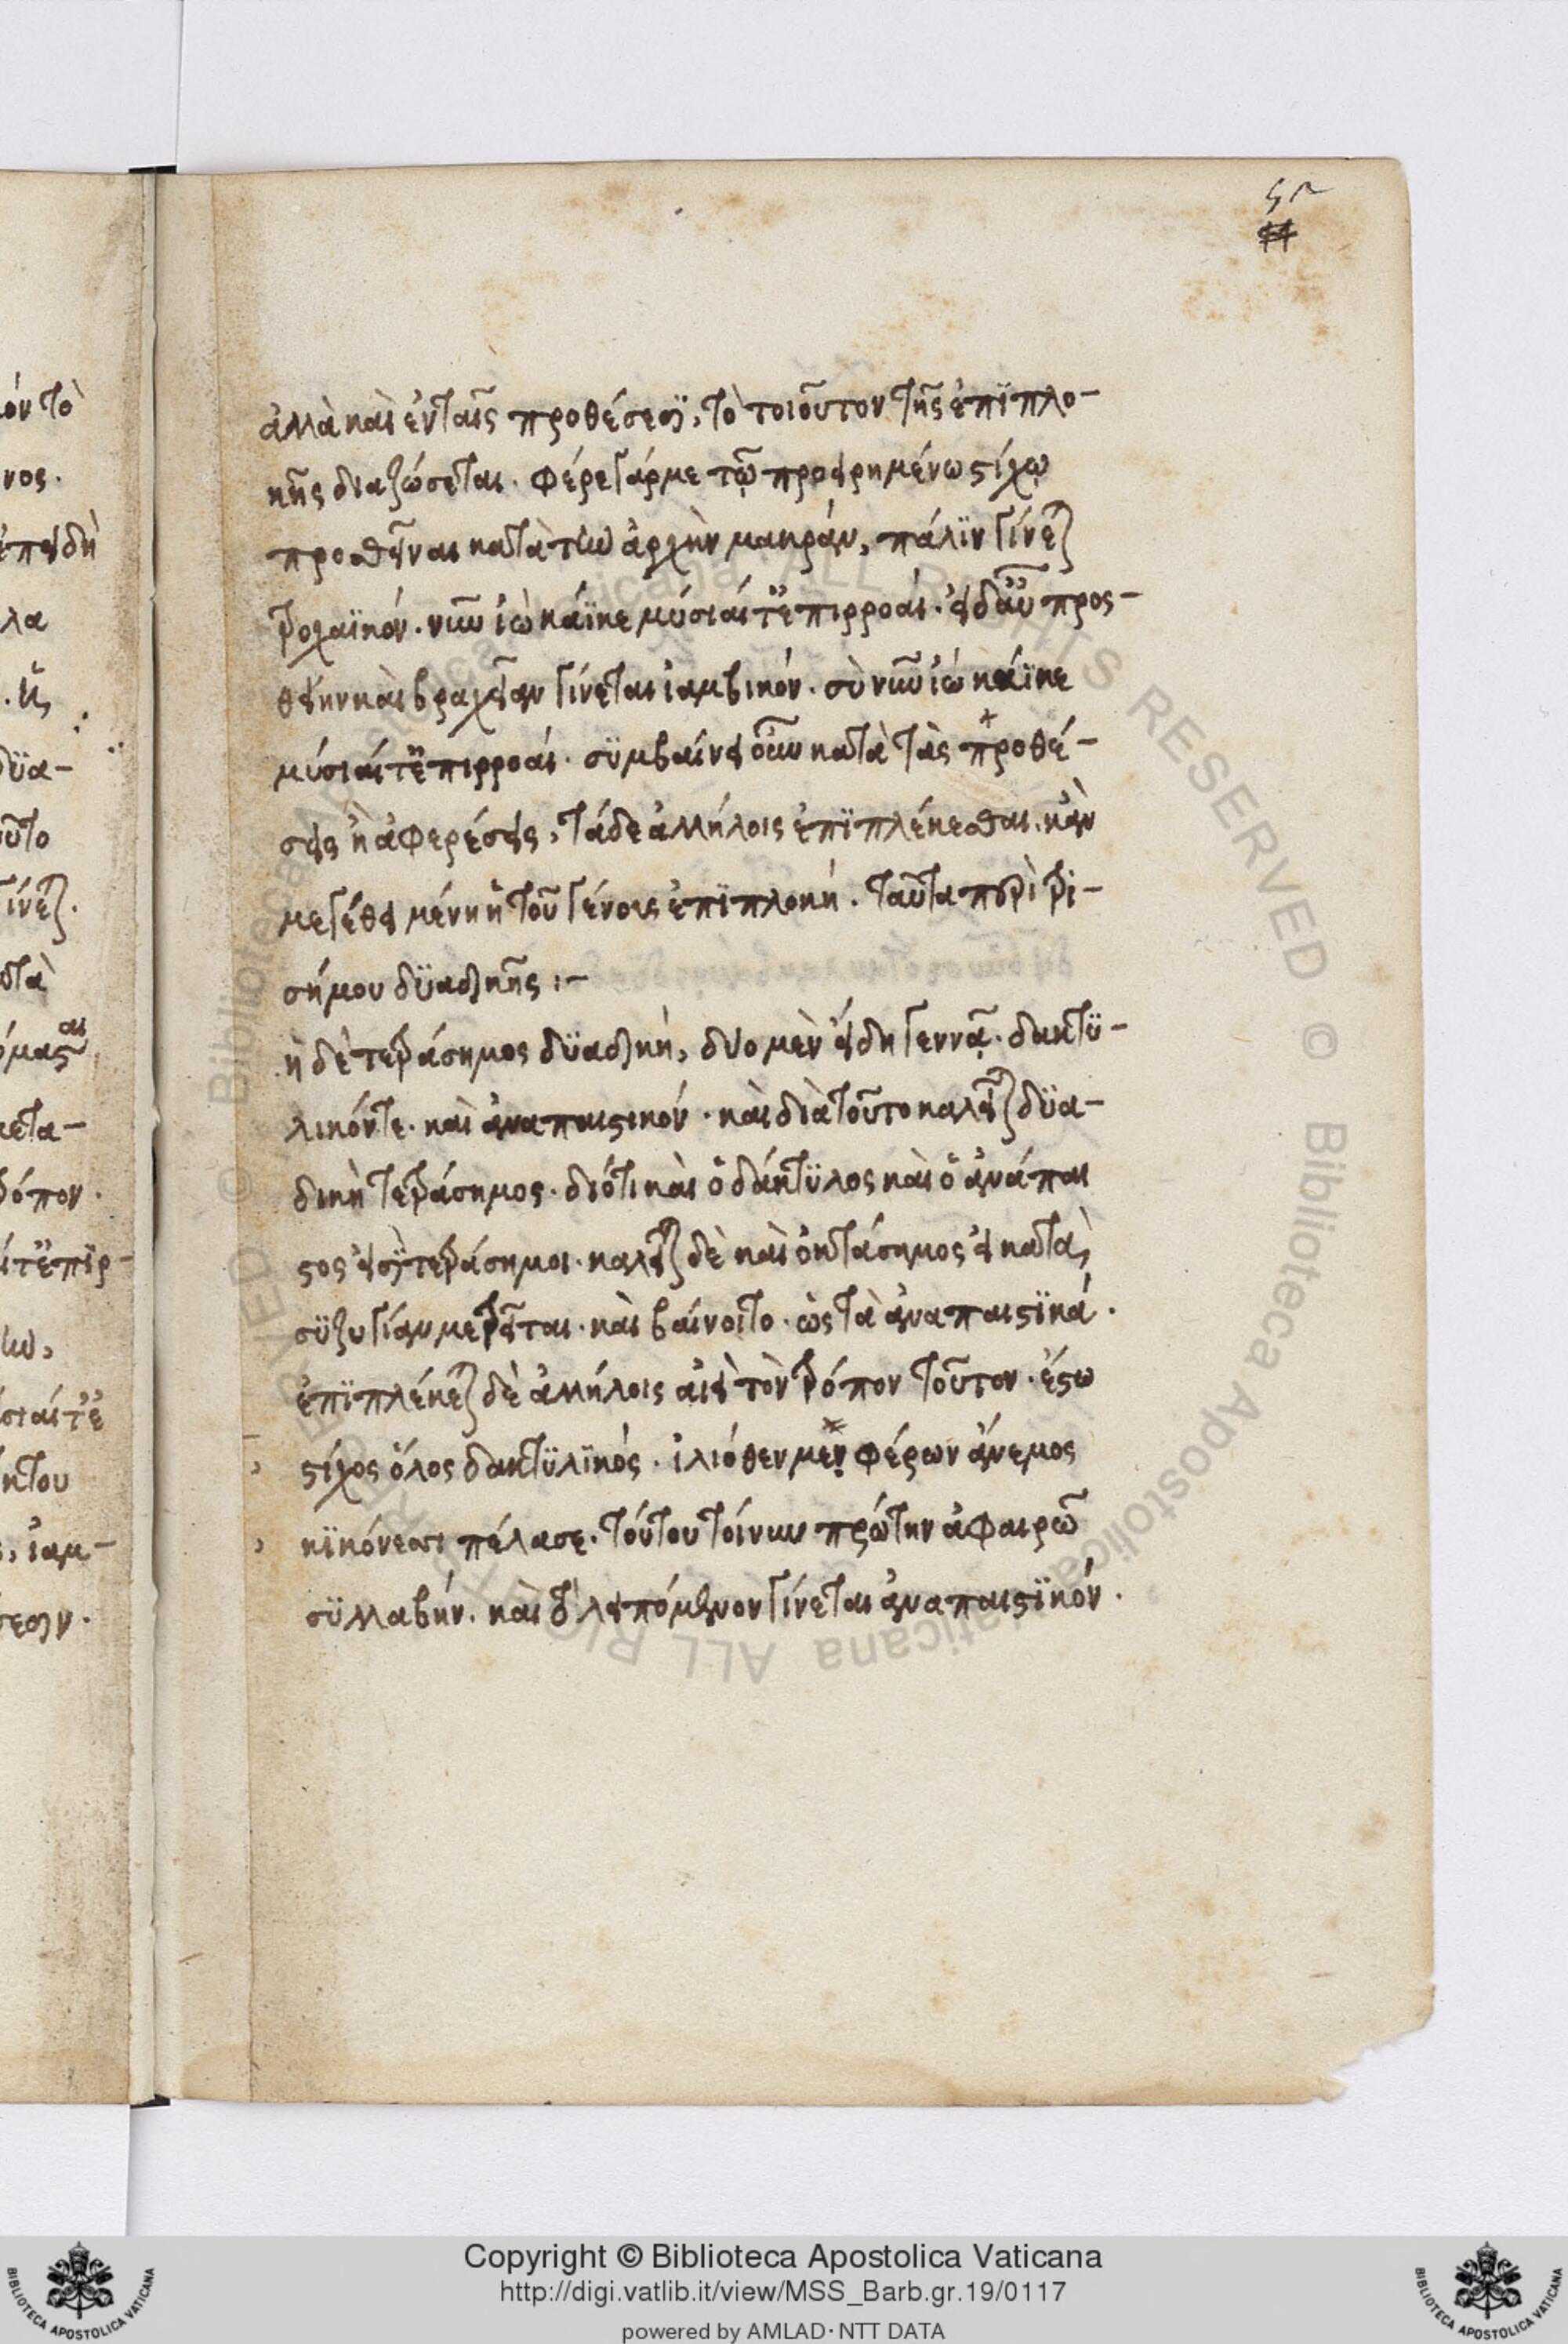 ἀλλὰ καὶ ἐν ταῖς προθέσεσϊ, τὸ τοιοῦτον τῆς ἐπϊπλο-
κῆς διαζώσεται. φέρε γάρ με τῷ προειρημένω στίχῳ
προσθεῖναι κατὰ τὴν ἀρχὴν μακράν, πάλϊν γίνεται
τροχαϊκόν. νῦν ἰὼ κάϊκε μύσιαί τ̓ ἐπιρροάι. εἰ δ' ἂν προς-
θείην καὶ βραχεῖαν γίνεται ἰαμβικόν. σὺ νῦν ἰώ κάϊκε
μύσιαί τ̓ ἐπιρροάι. σϋμβαίνει οὖν κατὰ τὰς προθέ-
σεις ἢ ἀφερέσεις, τάδε ἀλλήλοις ἐπϊπλέκεσθαι. κἂν
μεγέθει μένη ἡ τοῦ γένους ἐπϊπλοκή. ταῦτα περὶ τρϊ-
σήμου δϋαδικῆς :-
ἡ δὲ τετράσημος δϋαδικὴ, δύο μὲν εἴδη γεννᾷ. δακτϋ-
λικόν τε. καὶ ἀναπαιστικόν. καὶ διὰ τοῦτο καλεῖται δϋα-
δικὴ τετράσημος. διότι καὶ ὁ δάκτϋλος καὶ ὁ ἀνάπαι
στος εἰσϊ τετράσημοι. καλεῖται δὲ καὶ ὀκτάσημος εἰ κατὰ,
σϋζυγίαν μετρεῖται. καὶ βαίνοιτο. ὡς τὰ ἀναπαιστϊκά.
ἐπϊπλέκεται δὲ ἀλλήλοις αἰεὶ τὸν τρόπον τοῦτον. ἔστω
στίχος ὅλος δακτϋλϊκός. ἰλιόθεν μὲν φέρων ἄνεμος
κϊκόνεσσι πέλασε. τούτου τοίνυν πρώτην ἀφαιρῶ
σϋλλαβήν. καὶ τὸ λειπόμενον γίνεται ἀναπαιστϊκόν.
Copyright © Biblioteca Apostolica Vaticana
http://digi.vatlib.it/view/MSS_Barb.gr.19/0117
powered by AMLAD·NTT DATA